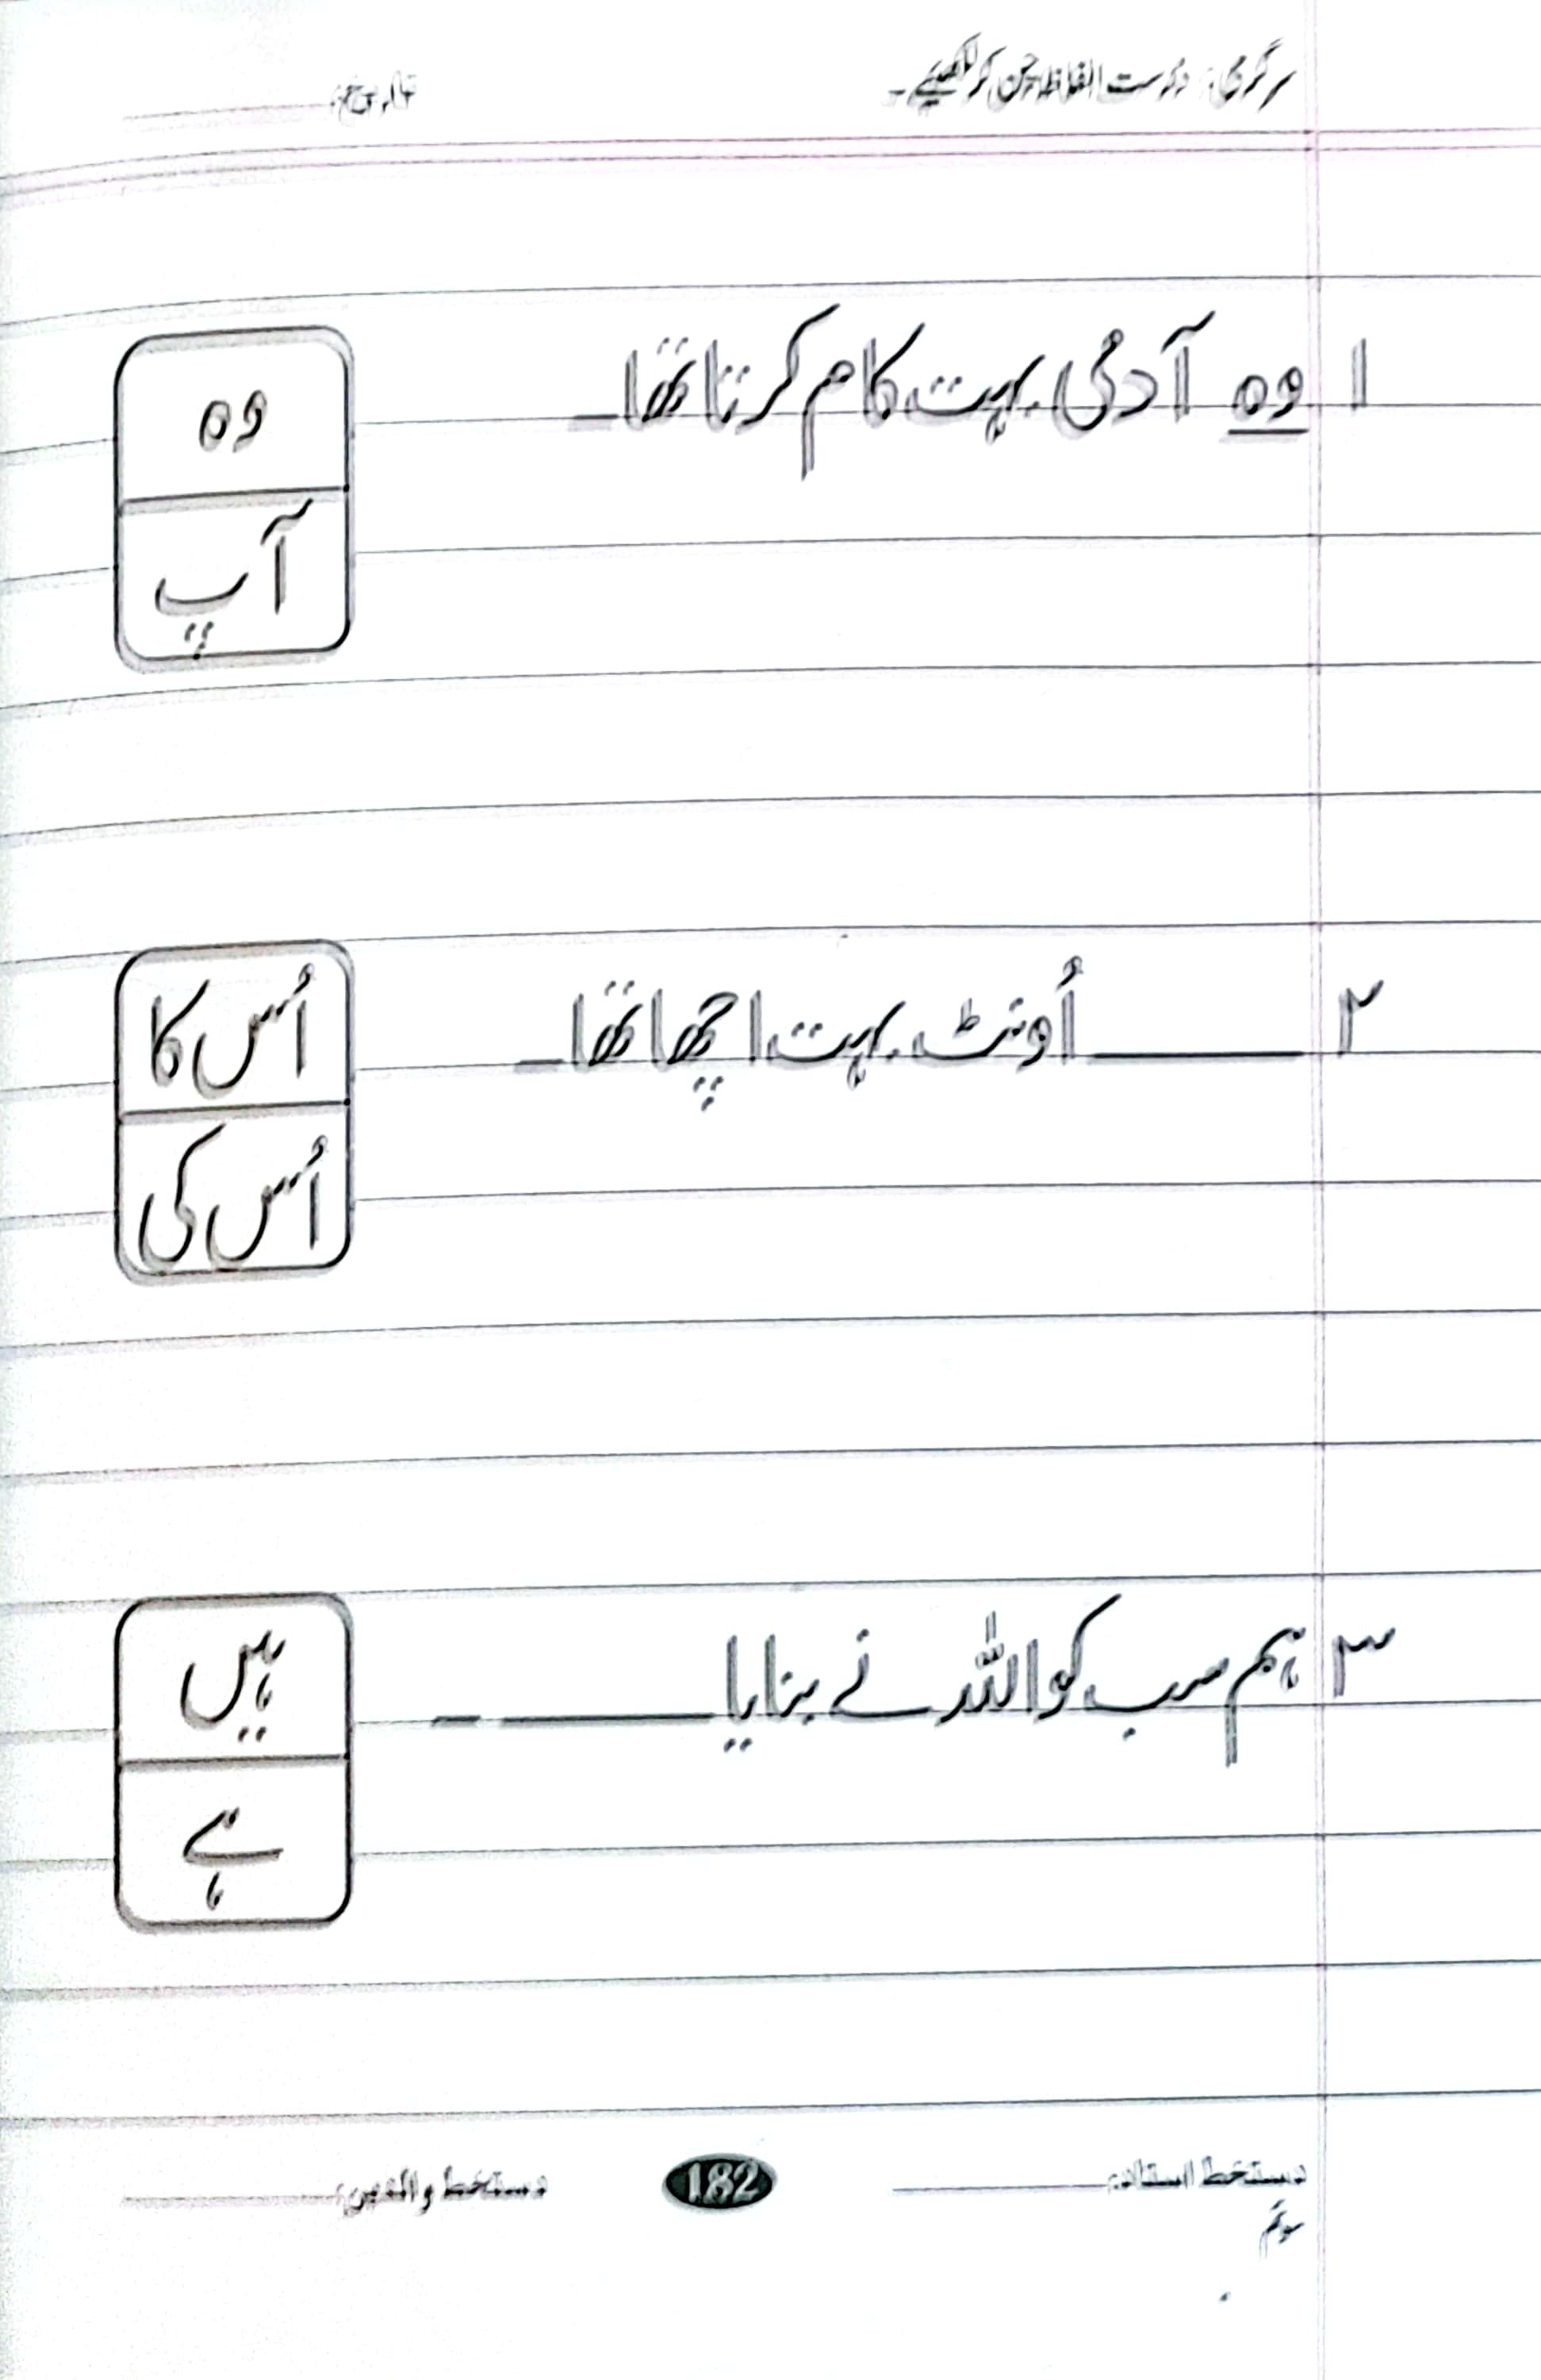 سرگرمی: درست الفاظ چن کر لکھیے۔ تاریخ:
۱ وہ آدمی بہت کام کرتا تھا۔
وہ
آپ
۲ ______ اُونٹ بہت اچھا تھا۔
اُس کا
اُس کی
۳ ہم سب کو اللہ نے بنایا ______ ۔
ہیں
ہے
دستخط استاد: 182 دستخط والدین:
سوئم